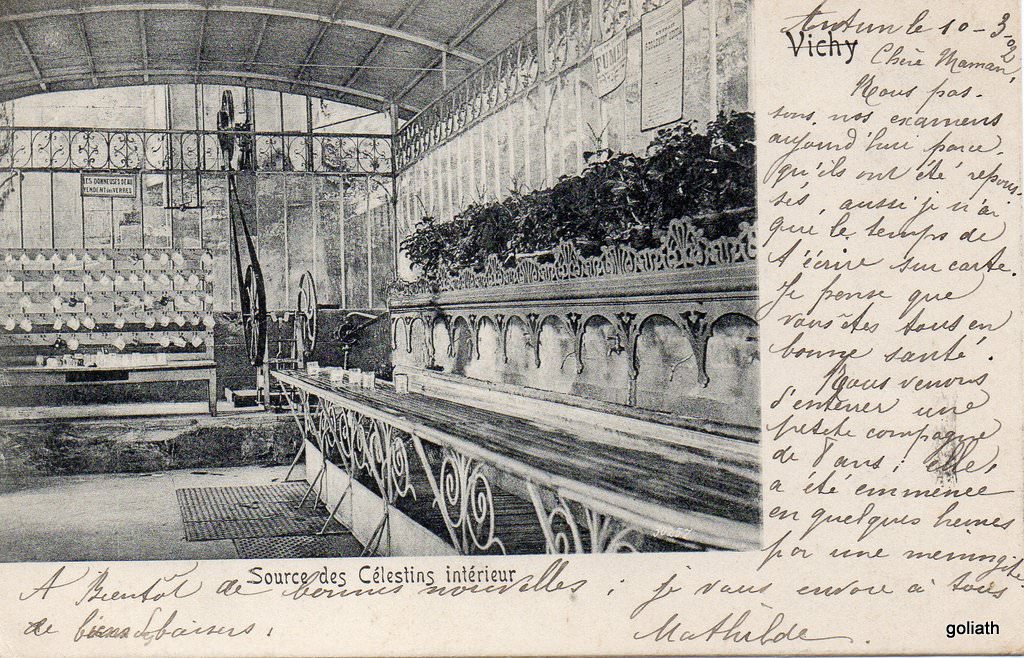 Autun le 10-3-02
Vichy
Chère Maman,
Nous pas-
sons nos examens
aujourd'hui parce
qu'ils ont été repous
sés, aussi je n'ai
que le temps de
t'écrire sur carte.
Je pense que
vous êtes tous en
bonne santé.
Nous venons
d'enterrer une
petite compagne
de 8 ans ; elle,
a été emmenée
en quelques heures
par une méningite
FUMER
LES DONNEUSES D'EAU
VENDENT DES VERRES
Source des Célestins intérieur
A Bientôt de bonnes nouvelles ; je vous envoie à tous
de biens baisers.
Mathilde
goliath